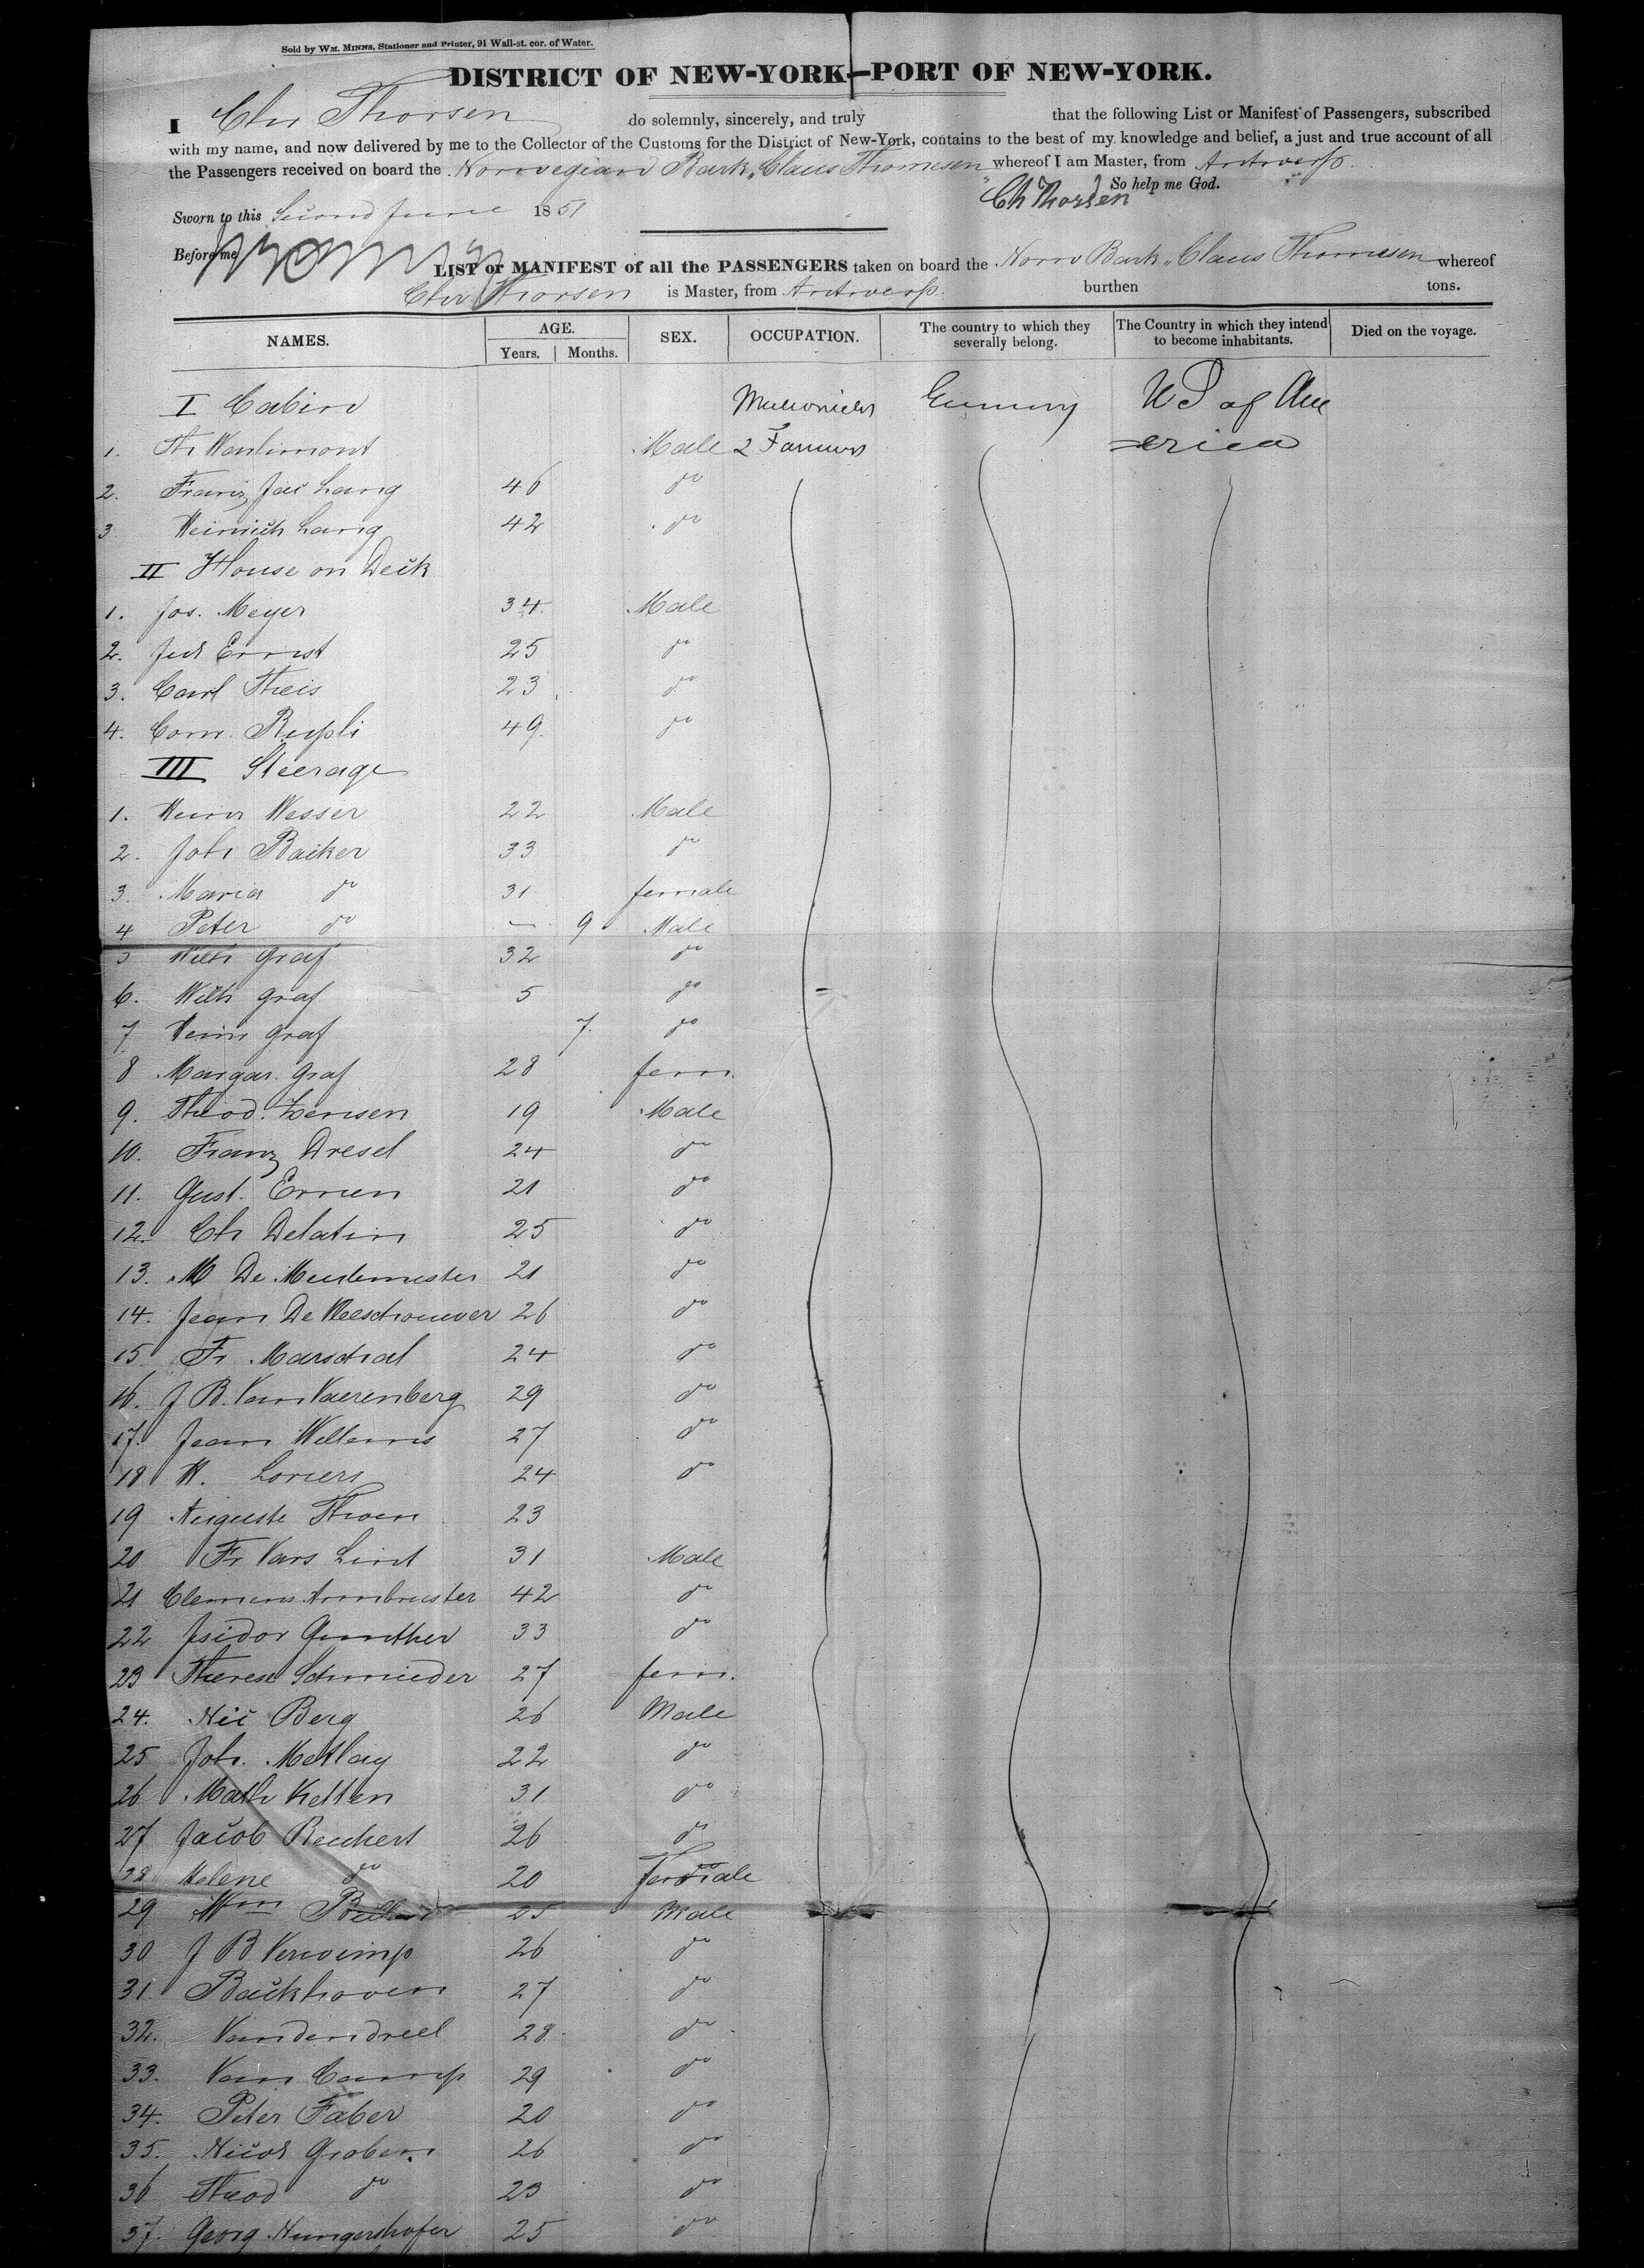 Sold by WM. MINNS, Stationer and Printer, 91 Wall-st. cor. of Water.
DISTRICT OF NEW-YORK—PORT OF NEW-YORK.
I Chr Thorsen do solemnly, sincerely, and truly that the following List or Manifest of Passengers, subscribed
with my name, and now delivered by me to the Collector of the Customs for the District of New-York, contains to the best of my knowledge and belief, a just and true account of all
the Passengers received on board the Norwegian Bark „Claus Thomesen" whereof I am Master, from Antwerp.
So help me God.
Ch Thorsen
Sworn to this Second June 1851
Before me
LIST or MANIFEST of all the PASSENGERS taken on board the Norw Bark „Claus Thomesen whereof
Chr Thorsen is Master, from Antwerp. burthen tons.
NAMES. AGE. Years. Months. SEX. OCCUPATION. The country to which they severally belong. The Country in which they intend to become inhabitants. Died on the voyage.
I Cabin Germany US of Am
1. Male 2 Farmers =erica
2. Franz Jac Lang 46 do
3. Heinrich Lang 42 do
II House on Deck
1. Jos. Meyer 34 Male
2. Ernst 25 do
3. Carl Theis 23 do
4. Conr. Rupli 49 do
III Steerage
1. Heinr Wesser 22 Male
2. Joh Backer 33 do
3. Maria do 31 female
4 Peter do — 9 Male
5 Wilh Graf 32 do
6. Wilh Graf 5 do
7 Heinr Graf 7. do
8 Margar. Graf 28 fem.
9. Theod. Zensen 19 Male
10. Franz Dresel 24 do
11. Gust. Ernen 21 do
12. Ch Delatin 25 do
13. M De Meulemester 21 do
14. Jean De Vleeschouwer 26 do
15 Fr. Marschal 24 do
16. J B. Van Vaerenberg 29 do
17. Jean Willems 27 do
18 H. Loriers 24 do
19 Auguste Thoen 23
20 Fr Van Lint 31 Male
21 Clemens Armbruster 42 do
22 Isidor Gunther 33 do
23 Therese Schmieder 27 fem.
24. Nic Berg 26 Male
25 Joh. Metlay 22 do
26 Math Ketten 31 do
27 Jacob Reichert 26 do
28 Helene do 20 female
29 Wm 25 Male
30 J B Verwimp 26 do
31 Backhoven 27 do
32. Vandendreel 28 do
33. Van Camp 29 do
34. Peter Faber 20 do
35. Nicol Groben 26 do
36 Theod do 23 do
37. Georg Hungershofer 25 do